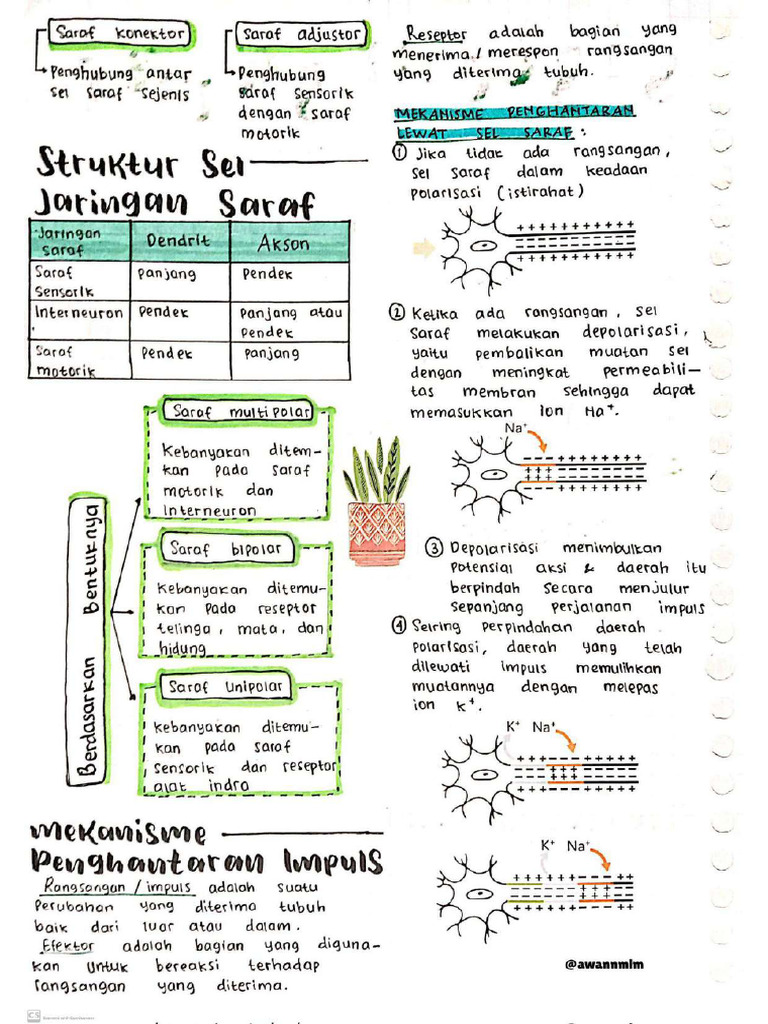 Saraf konektor
Penghubung antar
sel saraf sejenis
Saraf adjustor
Penghubung
saraf sensorik
dengan saraf
motorik
Struktur Sel
Jaringan Saraf
Jaringan saraf Dendrit Akson
Saraf Sensorik Panjang Pendek
Interneuron Pendek Panjang atau Pendek
Saraf motorik Pendek Panjang
Berdasarkan Bentuknya
Saraf multipolar
Kebanyakan ditem-
kan pada saraf
motorik dan
interneuron
Saraf bipolar
Kebanyakan ditemu-
kan pada reseptor
telinga, mata, dan
hidung
Saraf Unipolar
Kebanyakan ditemu-
kan pada saraf
sensorik dan reseptor
alat indra
Mekanisme
Penghantaran Impuls
Rangsangan / impuls adalah suatu
perubahan yang diterima tubuh
baik dari luar atau dalam.
Efektor adalah bagian yang diguna-
kan untuk bereaksi terhadap
rangsangan yang diterima.
Reseptor adalah bagian yang
menerima / merespon rangsangan
yang diterima tubuh.
MEKANISME PENGHANTARAN
LEWAT SEL SARAF :
1 Jika tidak ada rangsangan,
sel saraf dalam keadaan
polarisasi (istirahat)
2 Ketika ada rangsangan, sel
saraf melakukan depolarisasi,
yaitu pembalikan muatan sel
dengan meningkat permeabili-
tas membran sehingga dapat
memasukkan ion Na⁺.
Na⁺
3 Depolarisasi menimbulkan
potensial aksi & daerah itu
berpindah secara menjulur
sepanjang perjalanan impuls
4 Seiring perpindahan daerah
polarisasi, daerah yang telah
dilewati impuls memulihkan
muatannya dengan melepas
ion K⁺.
K⁺ Na⁺
K⁺ Na⁺
@awannmlm
CS